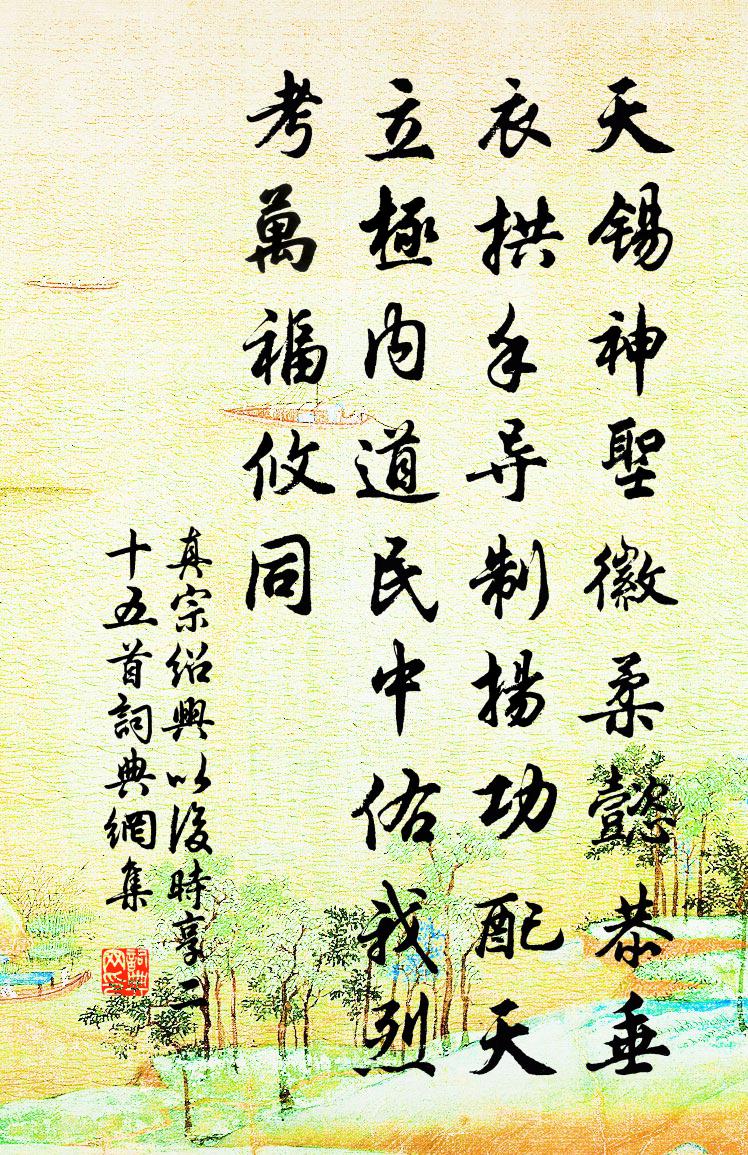 天錫神聖徽柔懿恭垂
衣拱手导制揚功配天
立極內道民中佑我烈
考萬福攸同
真宗紹興以後時享二
十五首詞典網集